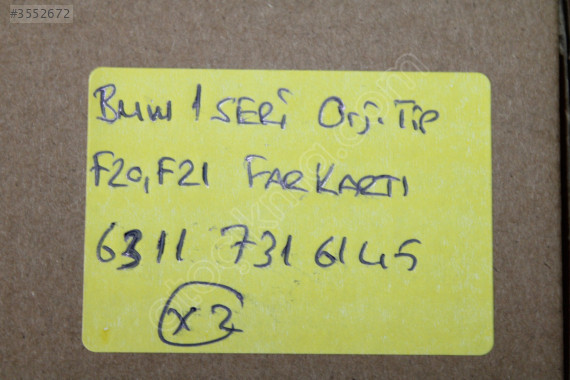 #3552672
BMW 1 SERİ Orj. Tip
F20, F21 FAR KARTI
6311 731 6145
x2